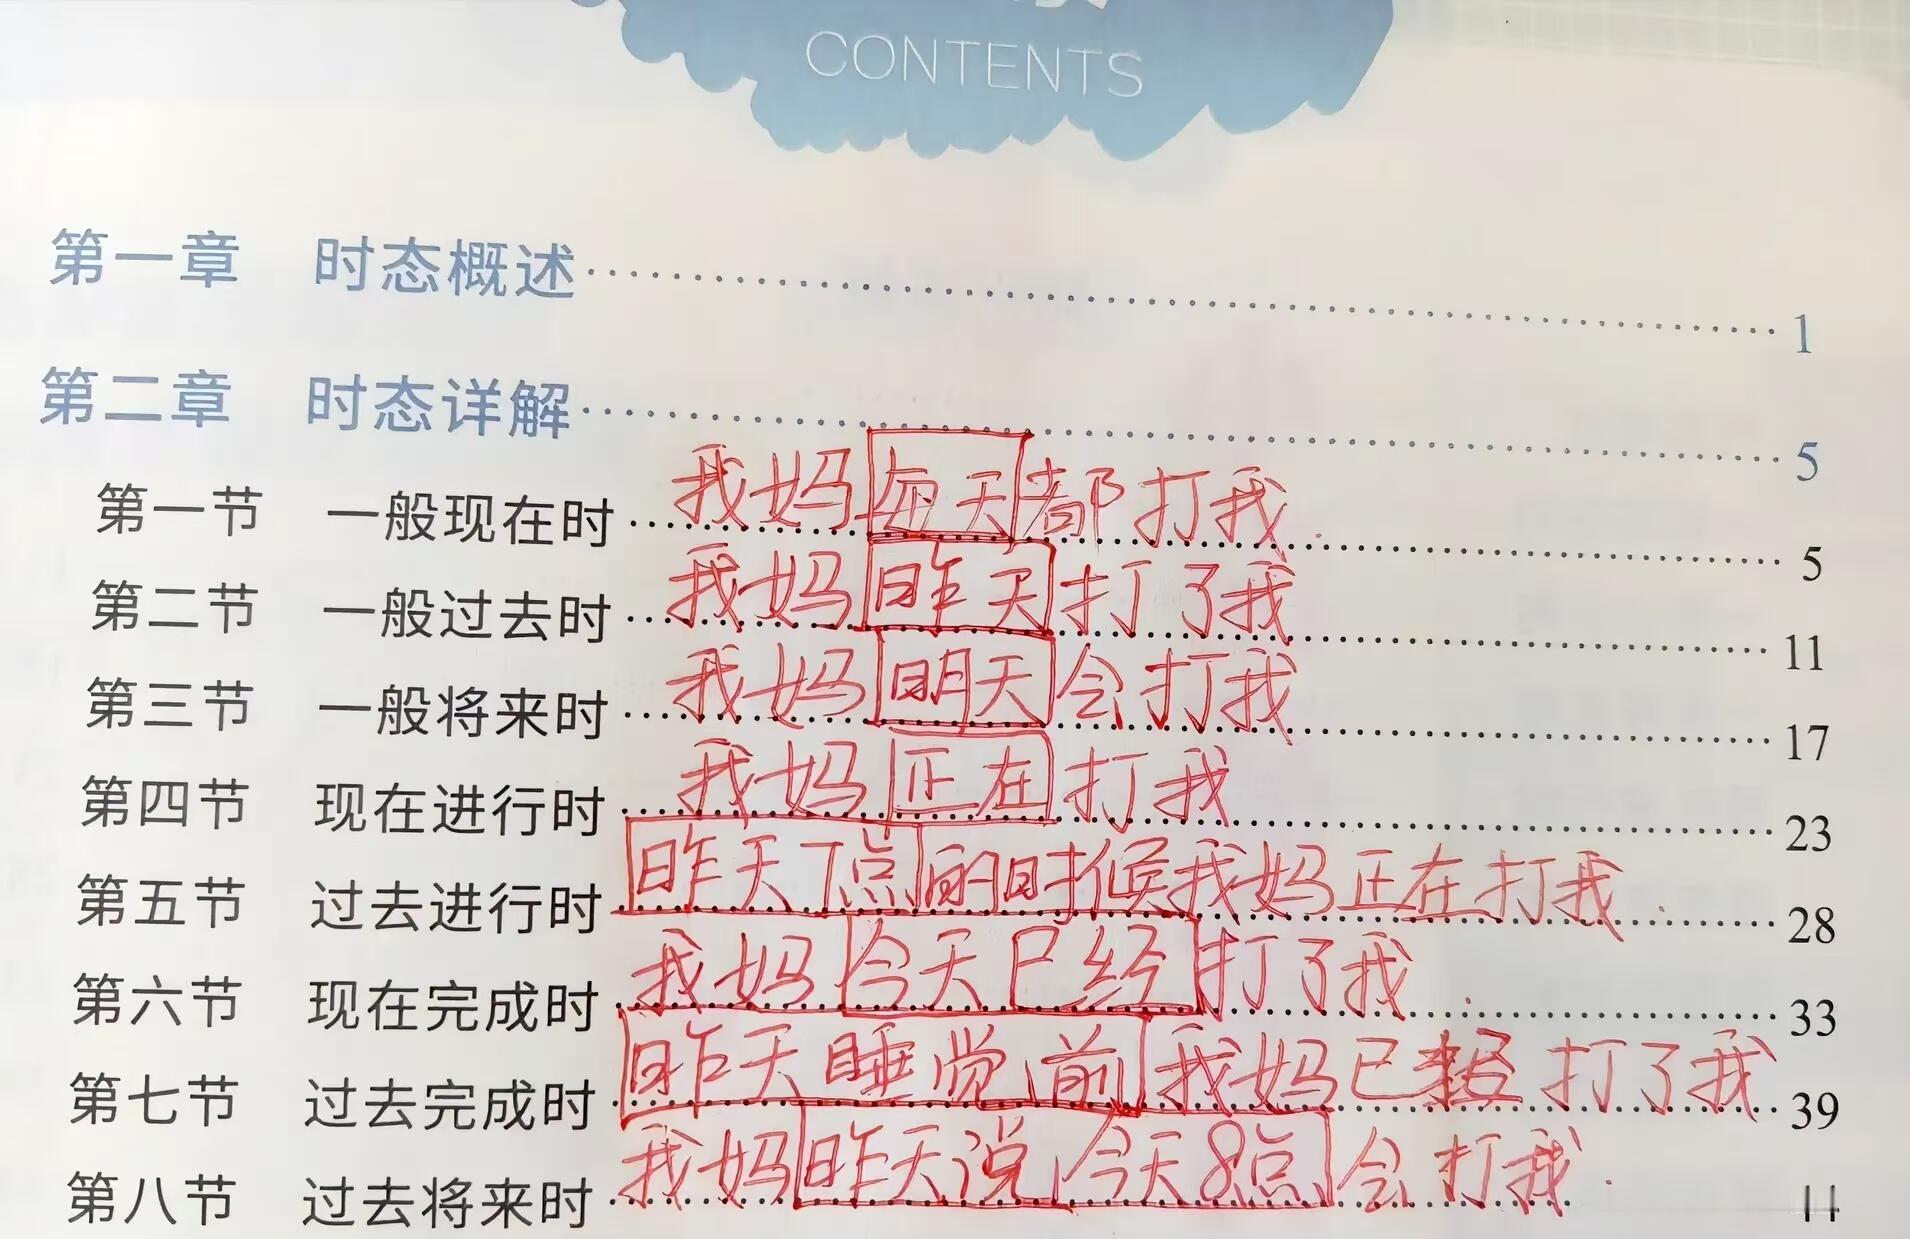 CONTENTS
第一章 时态概述 1
第二章 时态详解 5
第一节 一般现在时 我妈每天都打我. 5
第二节 一般过去时 我妈昨天打了我 11
第三节 一般将来时 我妈明天会打我 17
第四节 现在进行时 我妈正在打我 23
第五节 过去进行时 昨天下点的时候我妈正在打我. 28
第六节 现在完成时 我妈今天已经打了我. 33
第七节 过去完成时 昨天睡觉前我妈已经打了我 39
第八节 过去将来时 我妈昨天说今天8点会打我.